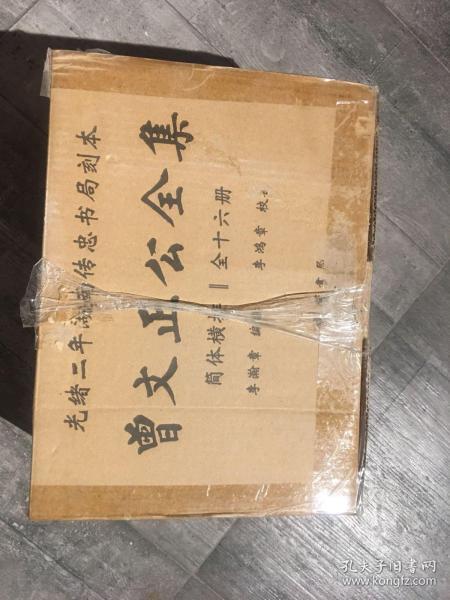 光绪二年湖南传忠书局刻本
曾文正公全集
简体横排 ‖ 全十六册
李瀚章 编 李鸿章 校
孔夫子旧书网
www.kongfz.com